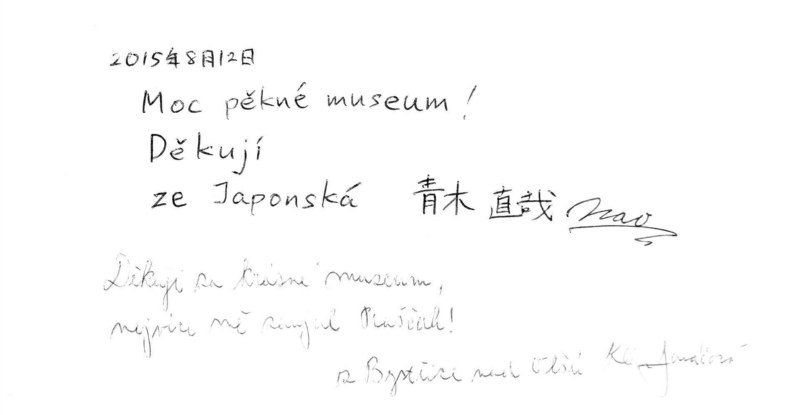 2015年8月12日
Moc pěkné museum!
Děkují
ze Japonská 青木 直哉 Nao
Děkuji za krásné museum,
nejvíce mě zaujal
z Bystřice nad Olší